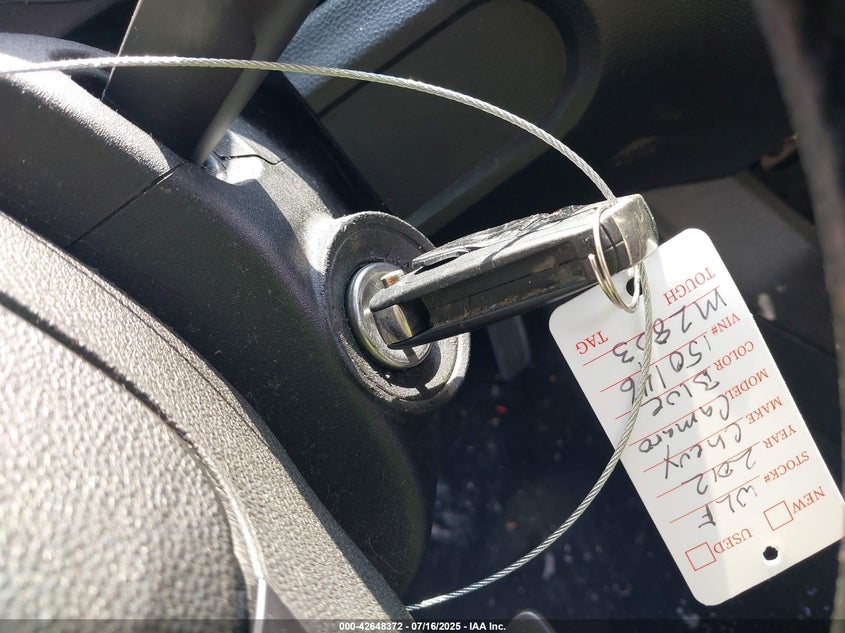 NEW USED
STOCK# WLF
YEAR 2012
MAKE Chevy
MODEL Camaro
COLOR Blue
VIN#
TOUGH TAG
000-42648372 - 07/16/2025 - IAA Inc.